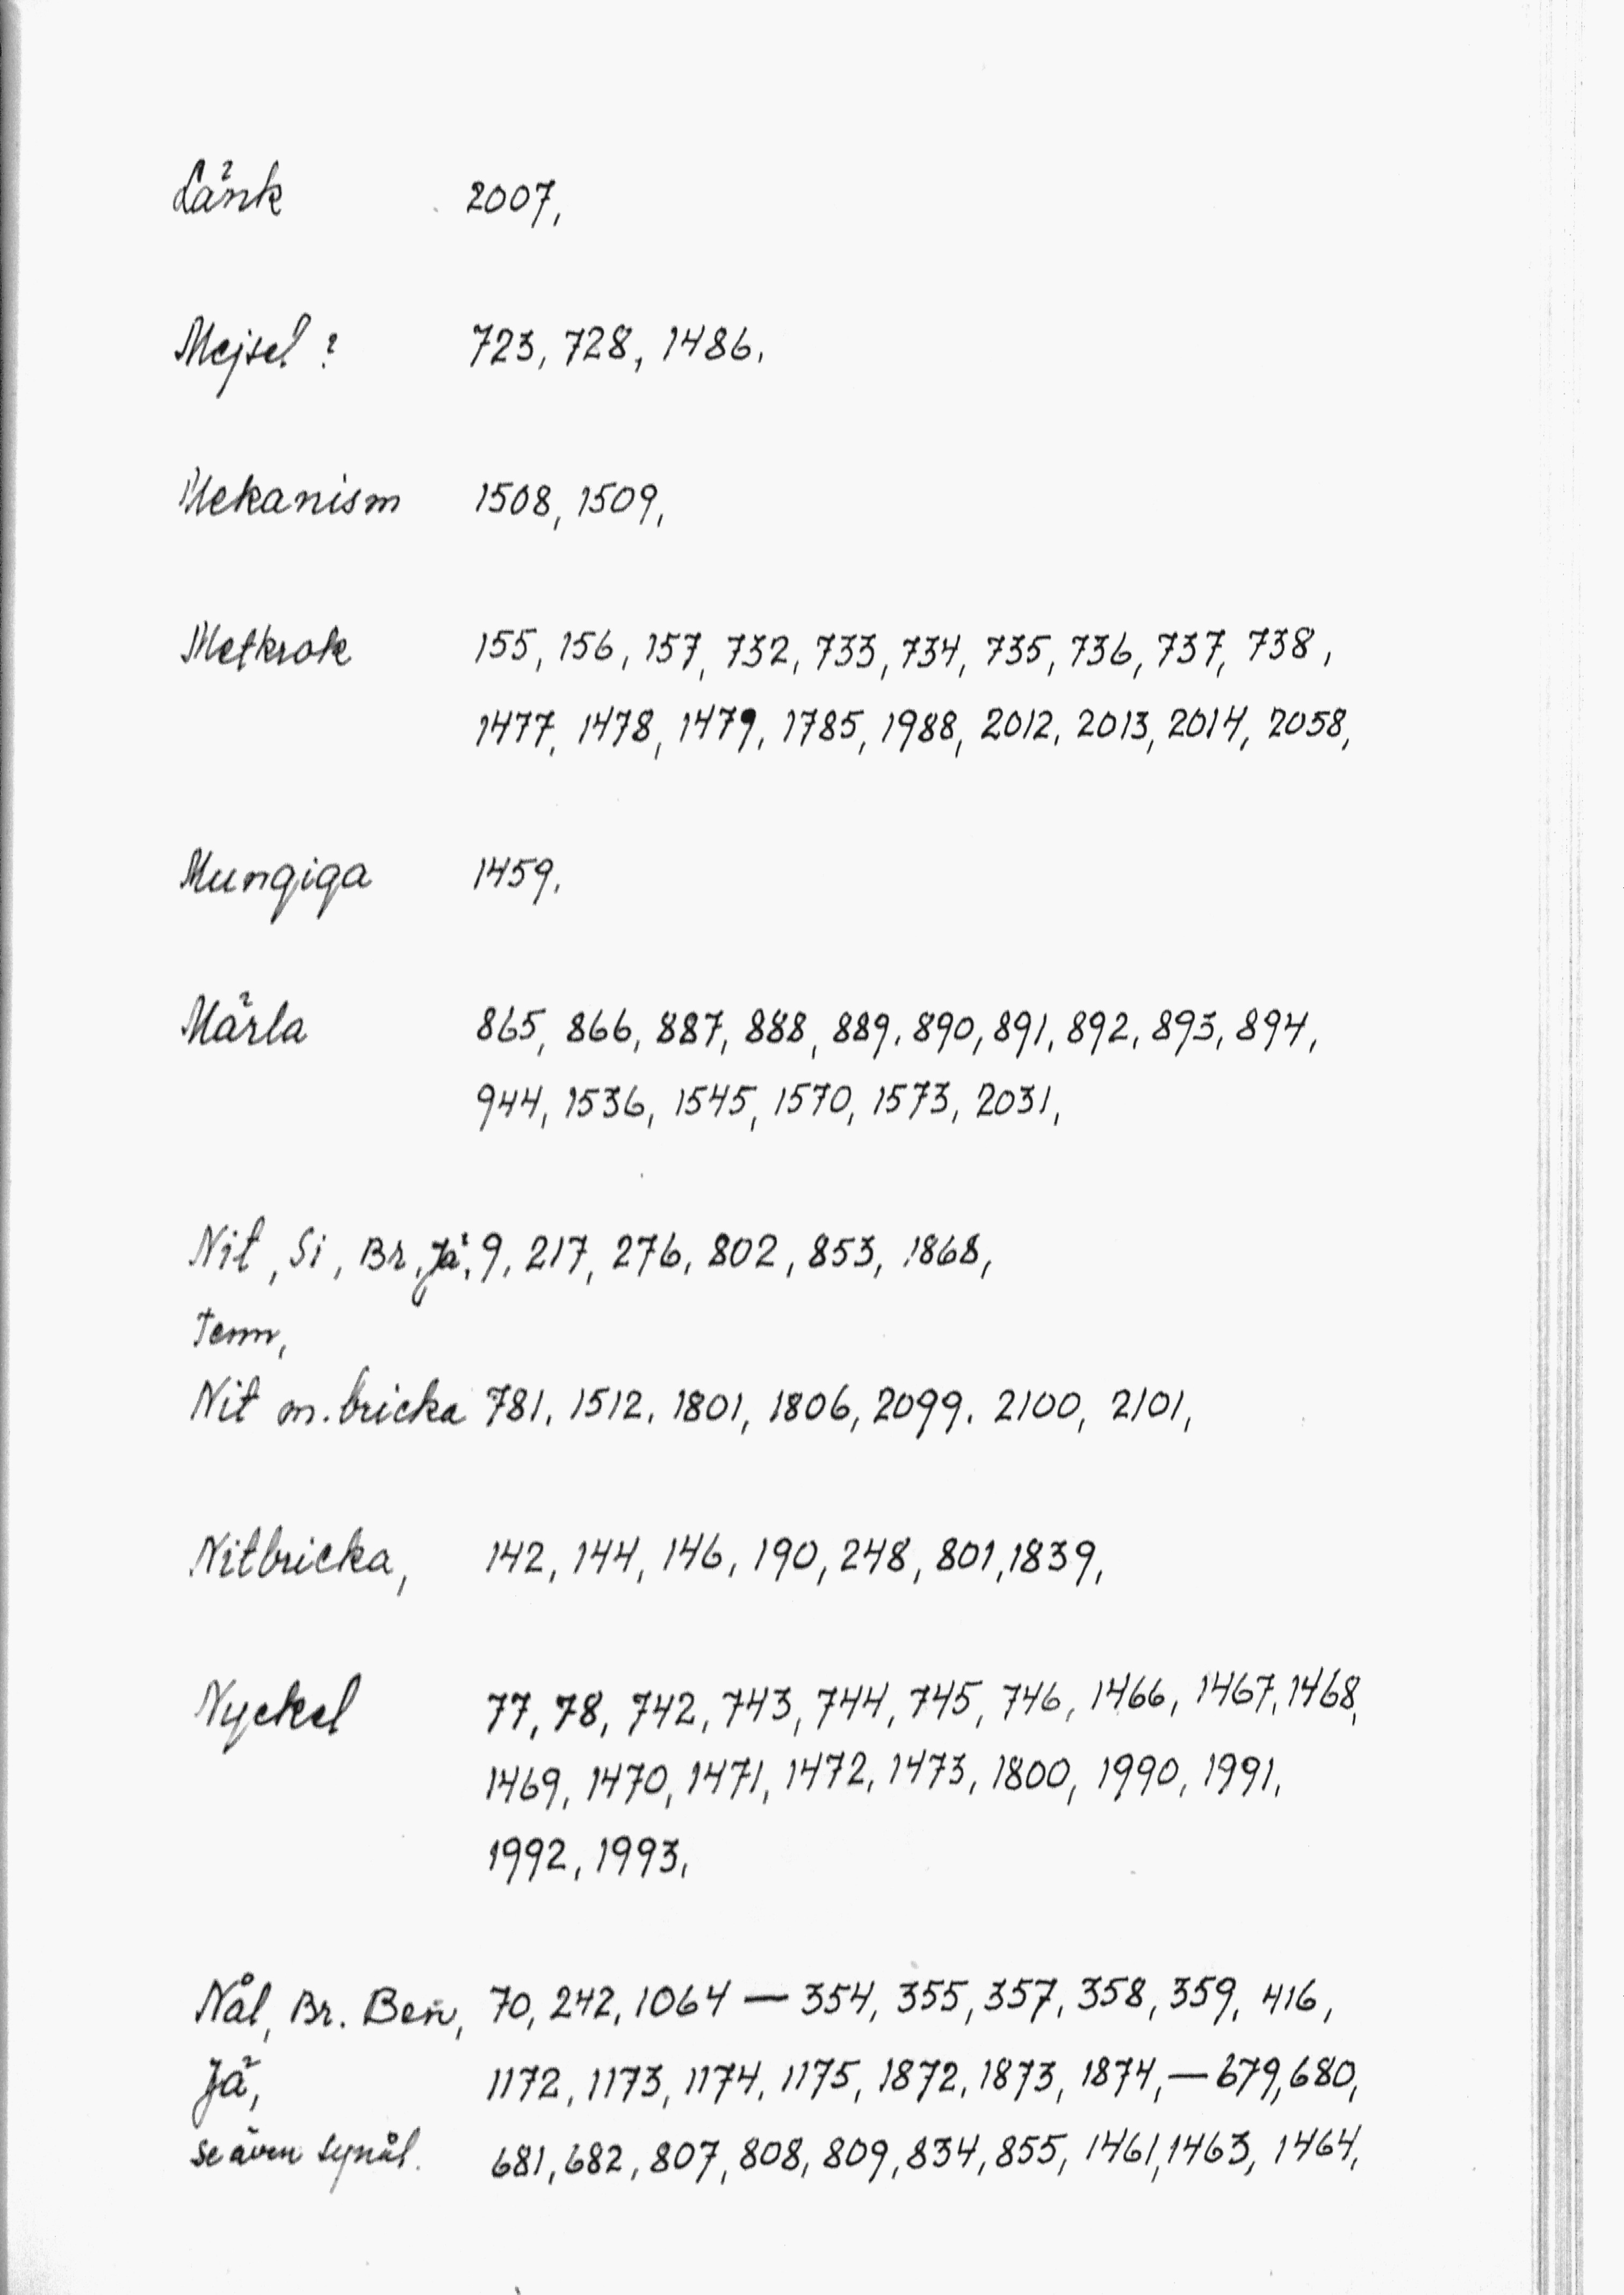 Länk 2007,
Mejsel ? 723, 728, 1486,
Mekanism 1508, 1509,
Metkrok 155, 156, 157, 732, 733, 734, 735, 736, 737, 738,
1477, 1478, 1479, 1785, 1988, 2012, 2013, 2014, 2058,
Mungiga 1459,
Märla 865, 866, 887, 888, 889, 890, 891, 892, 893, 894,
944, 1536, 1545, 1570, 1573, 2031,
Nit, Si, Br, Jä, 9, 217, 276, 802, 853, 1868,
Tenn,
Nit m. bricka 781, 1512, 1801, 1806, 2099, 2100, 2101,
Nitbricka, 142, 144, 146, 190, 248, 801, 1839,
Nyckel 77, 78, 742, 743, 744, 745, 746, 1466, 1467, 1468,
1469, 1470, 1471, 1472, 1473, 1800, 1990, 1991,
1992, 1993,
Nål, Br. Ben, 70, 242, 1064 — 354, 355, 357, 358, 359, 416,
Jä, 1172, 1173, 1174, 1175, 1872, 1873, 1874, — 679, 680,
se även synål. 681, 682, 807, 808, 809, 834, 855, 1461, 1463, 1464,